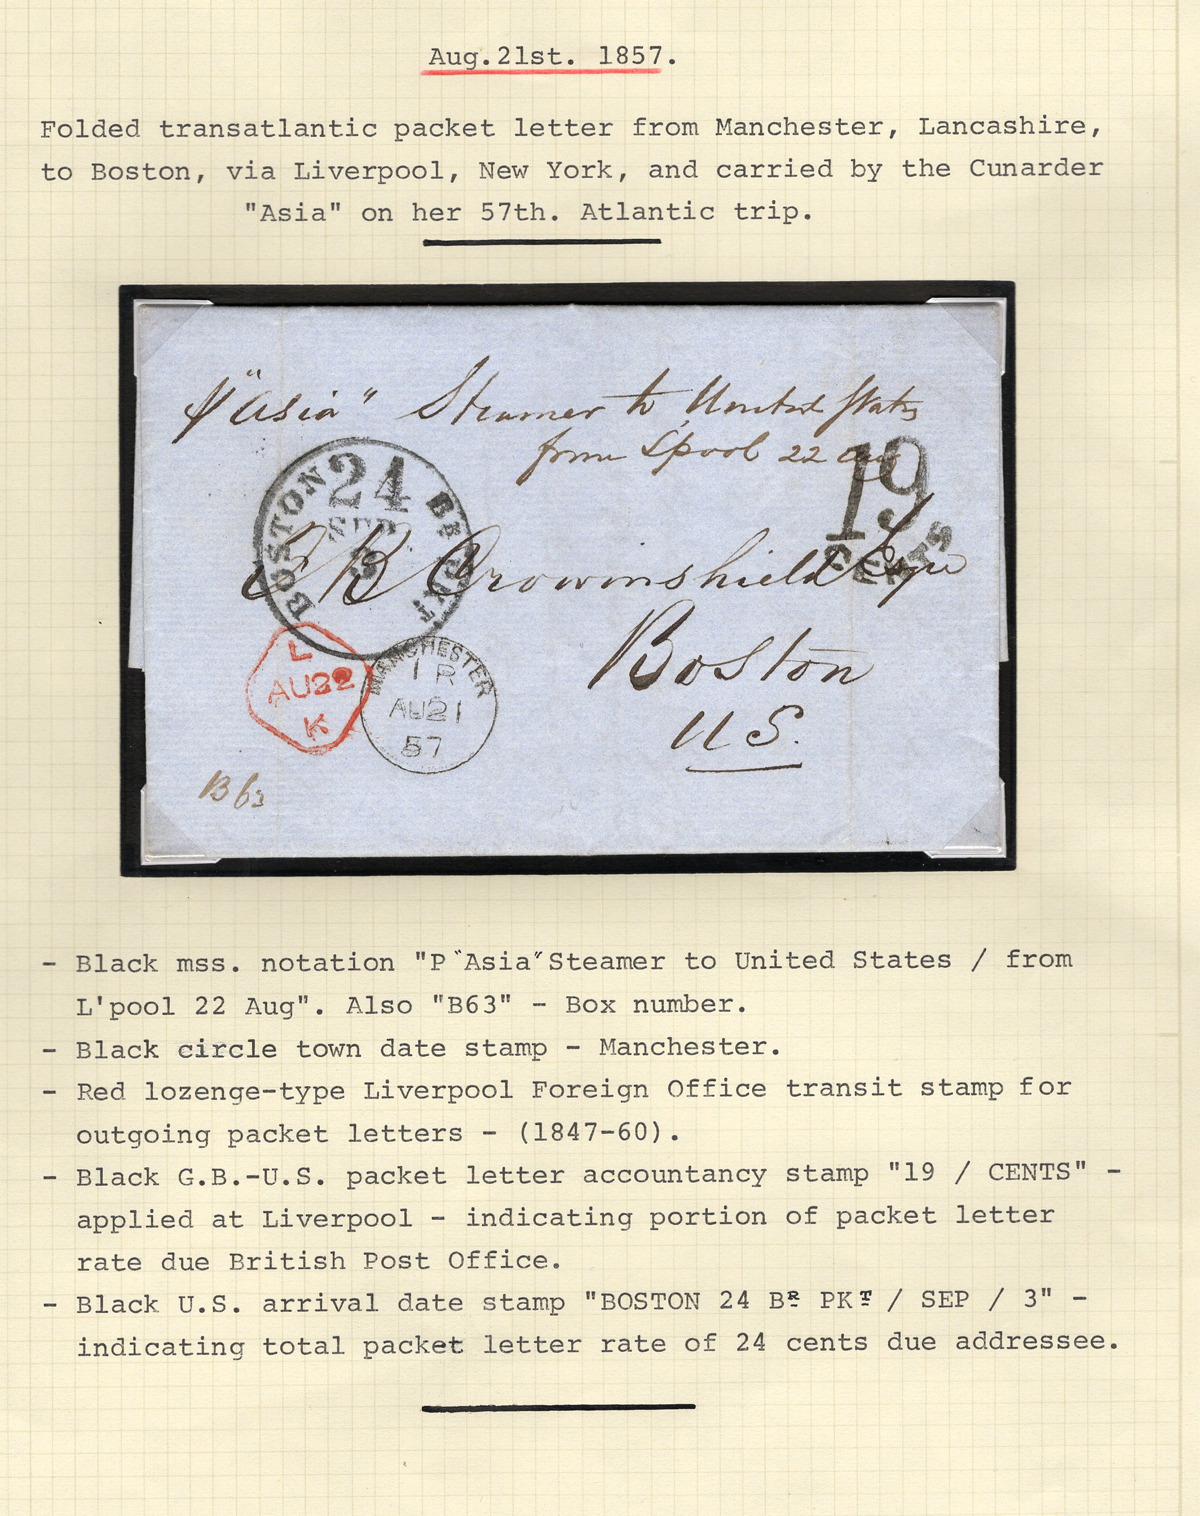 Aug.21st. 1857.
Folded transatlantic packet letter from Manchester, Lancashire,
to Boston, via Liverpool, New York, and carried by the Cunarder
"Asia" on her 57th. Atlantic trip.
"Asia" Steamer to United States
from L'pool 22 Aug
19
CENTS
BOSTON 24 BR PKT
SEP
3
E B Crowninshield Esqre
Boston
U S.
L
AU22
K
MANCHESTER
1 R
AU21
57
B 63
- Black mss. notation "P "Asia" Steamer to United States / from
L'pool 22 Aug". Also "B63" - Box number.
- Black circle town date stamp - Manchester.
- Red lozenge-type Liverpool Foreign Office transit stamp for
outgoing packet letters - (1847-60).
- Black G.B.-U.S. packet letter accountancy stamp "19 / CENTS" -
applied at Liverpool - indicating portion of packet letter
rate due British Post Office.
- Black U.S. arrival date stamp "BOSTON 24 BR PKT / SEP / 3" -
indicating total packet letter rate of 24 cents due addressee.